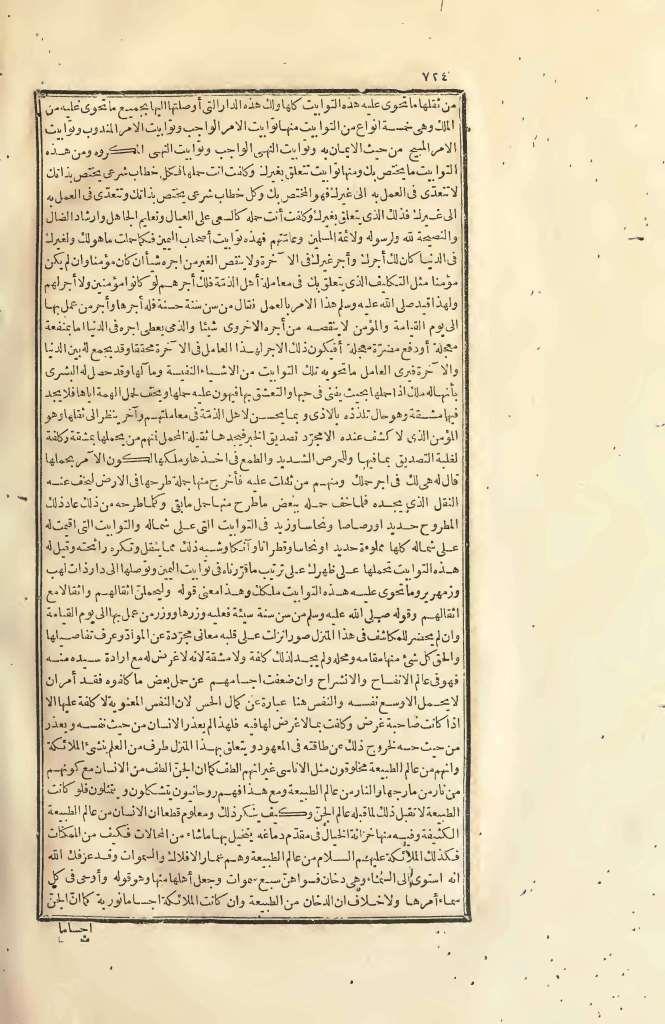 ٧٢٤
من نقلها ما تحوى عليه هذه التوابيت كلها ولك هذه الدار التى أوصلتها اليها بجميع ما تحوى عليه من
الملك وهى خمسة أنواع من التوابيت منها توابيت الامر الواجب وتوابيت الامر المندوب وتوابيت
الامر المبيح من حيث الايمان به وتوابيت النهى الواجب وتوابيت النهى المكروه ومن هذه
التوابيت ما يختص بك ومنها توابيت تتعلق بغيرك وكلفت أنت حملها فكل خطاب شرعى يختص بذاتك
لا تتعدى فى العمل به الى غيرك فهو المختص بك وكل خطاب شرعى يختص بذاتك وتتعدى فى العمل به
الى غيرك فذلك الذى يتعلق بغيرك وكلفت أنت حمله كالسعى على العيال وتعليم الجاهل وارشاد الضال
والنصيحة لله ولرسوله ولائمة المسلمين وعامتهم فهذه توابيت أصحاب اليمين فكما حملت ما هو لك ولغيرك
فى الدنيا كان لك أجرك وأجر غيرك فى الآخرة ولا ينقص الغير من اجره شأ ان كان مؤمنا وان لم يكن
مؤمنا مثل التكليف الذى يتعلق بك فى معاملة أهل الذمة فلك أجرهم لو كانوا مؤمنين ولا أجر لهم
ولهذا قيد صلى الله عليه وسلم هذا الامر بالعمل فقال من سن سنة حسنة فله أجرها وأجر من عمل بها
الى يوم القيامة والمؤمن لا ينقصه من أجره الاخروى شيئا والذى يعطى اجره فى الدنيا اما بمنفعة
معجلة أو دفع مضرة معجلة أفيكون ذلك الاجر لهذا العامل فى الآخرة محققا وقد يجمع له بين الدنيا
والآخرة فيرى العامل ما تحويه تلك التوابيت من الاشياء النفيسة وما كها وقد حصل له البشرى
بأنها له ملك اذا حملها بحيث يفنى فى حبها والتعشق بها فيهون عليه حملها ويخف لحمل الهمة اياها فلا يجد
فيها مشقة وهو حال تلذذه بالاذى وبما يحسن لاهل الذمة فى معاملتهم وآخر ينظر الى نقلها وهو
المؤمن الذى لا كشف عنده الا مجرد تصديق الخبر فيجدها ثقيلة المحمل فنهم من يحملها بمشقة وكلفة
لغلبة التصديق بما فيها وللحرص الشديد والطمع فى اخذها وملكها لكون الآمر بحملها
قال له هى لك فى اجر حملك ومنهم من ثقلت عليه فأخرج منها جملة طرحها فى الارض ليخف عنه
الثقل الذى يجده فلما خف حمله ببعض ما طرح منها حمل ما بقى وكلما طرحه من ذلك عاد ذلك
المطروح حديدا ورصاصا ونحاسا وزيد فى التوابيت التى على شماله والتوابيت التى اقيمت له
على شماله كلها مملوءة حديد او نحاسا وقطرانا وآنكا وشبه ذلك مما يثقل وتكره رائحته وقيل له
هذه التوابيت تحملها على ظهرك على ترتيب ما قررناه فى توابيت اليمين وتوصلها الى دار ذات لهب
وزمهرير وما تحوى عليه هذه التوابيت ملكك وهذا معنى قوله وليحملن اثقالهم واثقالا مع
اثقالهم وقوله صلى الله عليه وسلم من سن سنة سيئة فعليه وزرها ووزر من عمل بها الى يوم القيامة
وان لم يحضر للمكاشف فى هذا المنزل صورا نزلت على قلبه معانى مجردة عن المواد وعرف تفاصيلها
والحق كل شئ منها مقامه ومحله ولم يجد لذلك كلفة ولا مشقة لانه لا غرض له مع ارادة سيده منه
فهو فى عالم الانفساح والانشراح وان ضعفت اجسامهم عن حمل بعض ما كلفوه فقد أمر ان
لا يحمل الا وسع نفسه والنفس هنا عبارة عن كمال الحس لان النفس المعنوية لا كلفة عليها الا
اذا كانت صاحبة غرض وكلفت بما لا غرض لها فيه فلهذا لم يعذر الانسان من حيث نفسه ويعذر
من حيث حسه لخروج ذلك عن طاقته فى المعهود ويتعلق بهذا المنزل طرف من العلم بنشئ الملائكة
وانهم من عالم الطبيعة مخلوقون مثل الاناسى غير انهم الطف كما ان الجن الطف من الانسان مع كونهم
من نار من مارجها والنار من عالم الطبيعة ومع هذا فهم روحانيون يتشكلون ويتمثلون فلو كانت
الطبيعة لا تقبل ذلك لما قبله عالم الجن وكيف ينكر ذلك ومعلوم قطعا ان الانسان من عالم الطبيعة
الكثيفة وفيه منها خزانة الخيال فى مقدم دماغه يتخيل بها ما شاء من المحالات فكيف من الممكنات
فكذلك الملائكة عليهم السلام من عالم الطبيعة وهم عمار الافلاك والسموات وقد عرفك الله
انه استوى الى السماء وهى دخان فسواهن سبع سموات وجعل أهلها منها وهو قوله وأوحى فى كل
سماء أمرها ولا خلاف ان الدخان من الطبيعة وان كانت الملائكة اجساما نورية كما ان الجن
اجساما